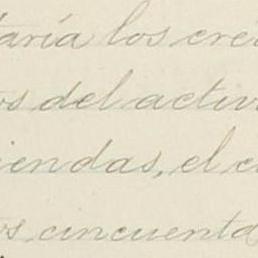 taría los cré
os del activ
iendas, el c
os cincuenta